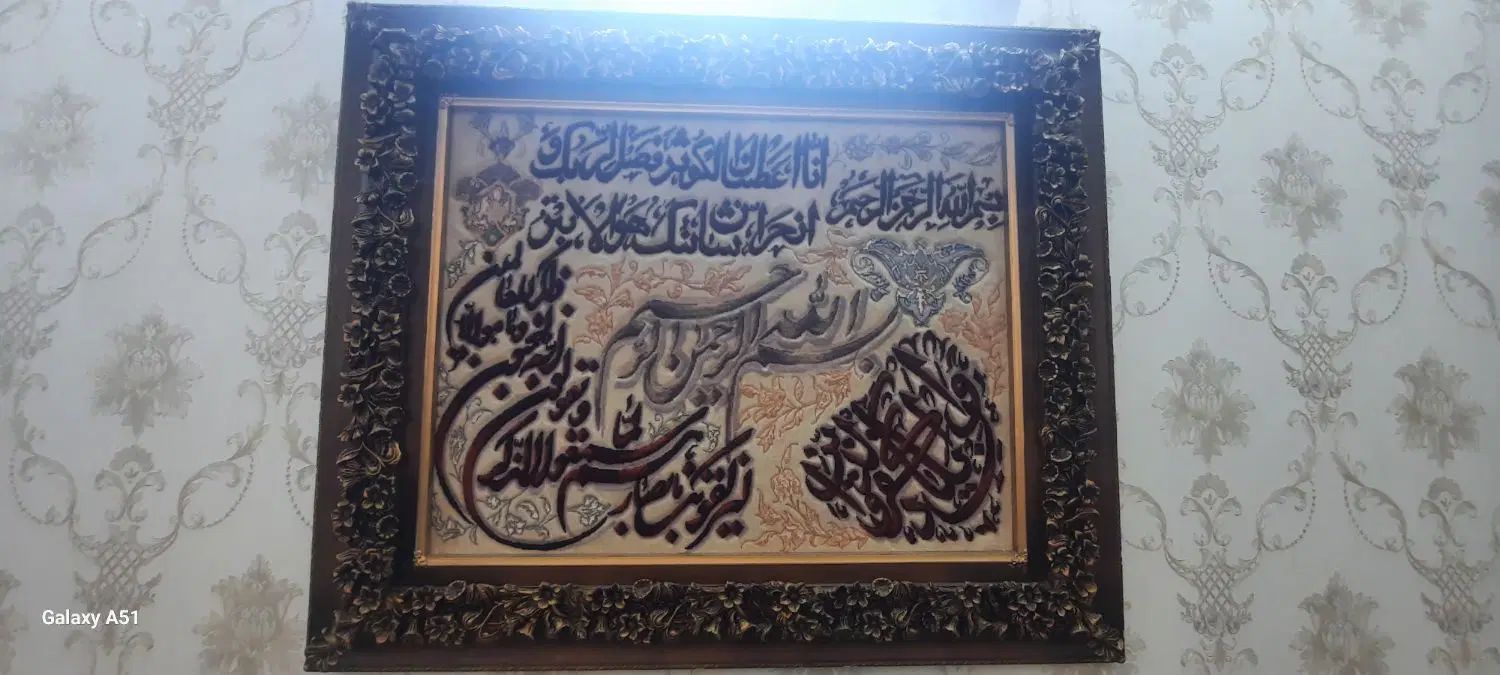 بسم الله الرحمن الرحیم
انا اعطیناک الکوثر فصل لربک و
انحر ان شانئک هو الابتر
بسم الله الرحمن الرحیم
و ان یکاد الذین کفروا
لیزلقونک بابصارهم لما
سمعوا الذکر
و یقولون
انه لمجنون
و ما هو الا
ذکر للعالمین
Galaxy A51